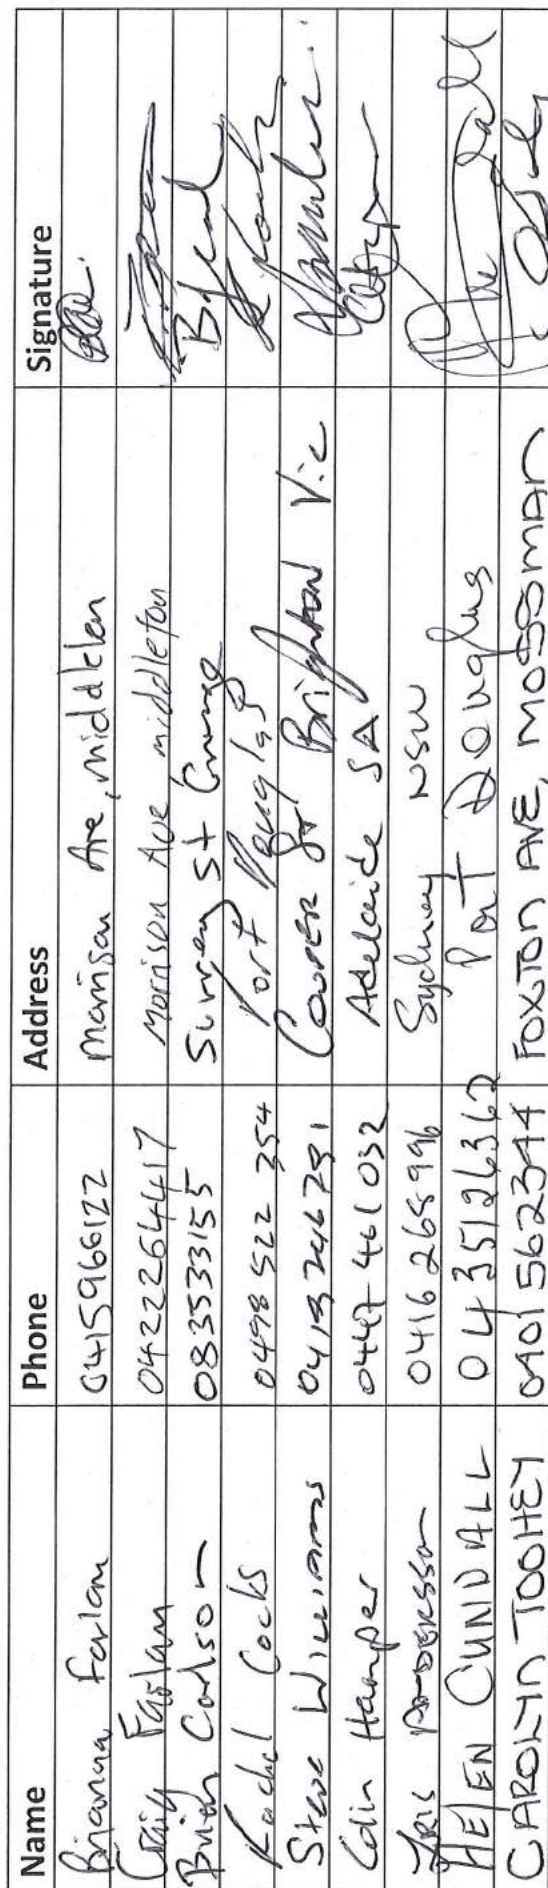 Name Phone Address Signature
Brianna Farlam 0415966122 Morrison Ave, middleton
Craig Farlam 0422264417 Morrison Ave middleton
Brian Carlson 083533155 Surrey St Grange
Rachel Cocks 0498 522 354 Port Douglas
Steve Williams Cooper St Brighton Vic
Colin Hamper 0447 461 032 Adelaide SA
Iris 0416 268 996 Sydney NSW
HELEN CUNDALL 0435126362 Port Douglas
CAROLYN TOOHEY 0401 562344 FOXTON AVE, MOSSMAN